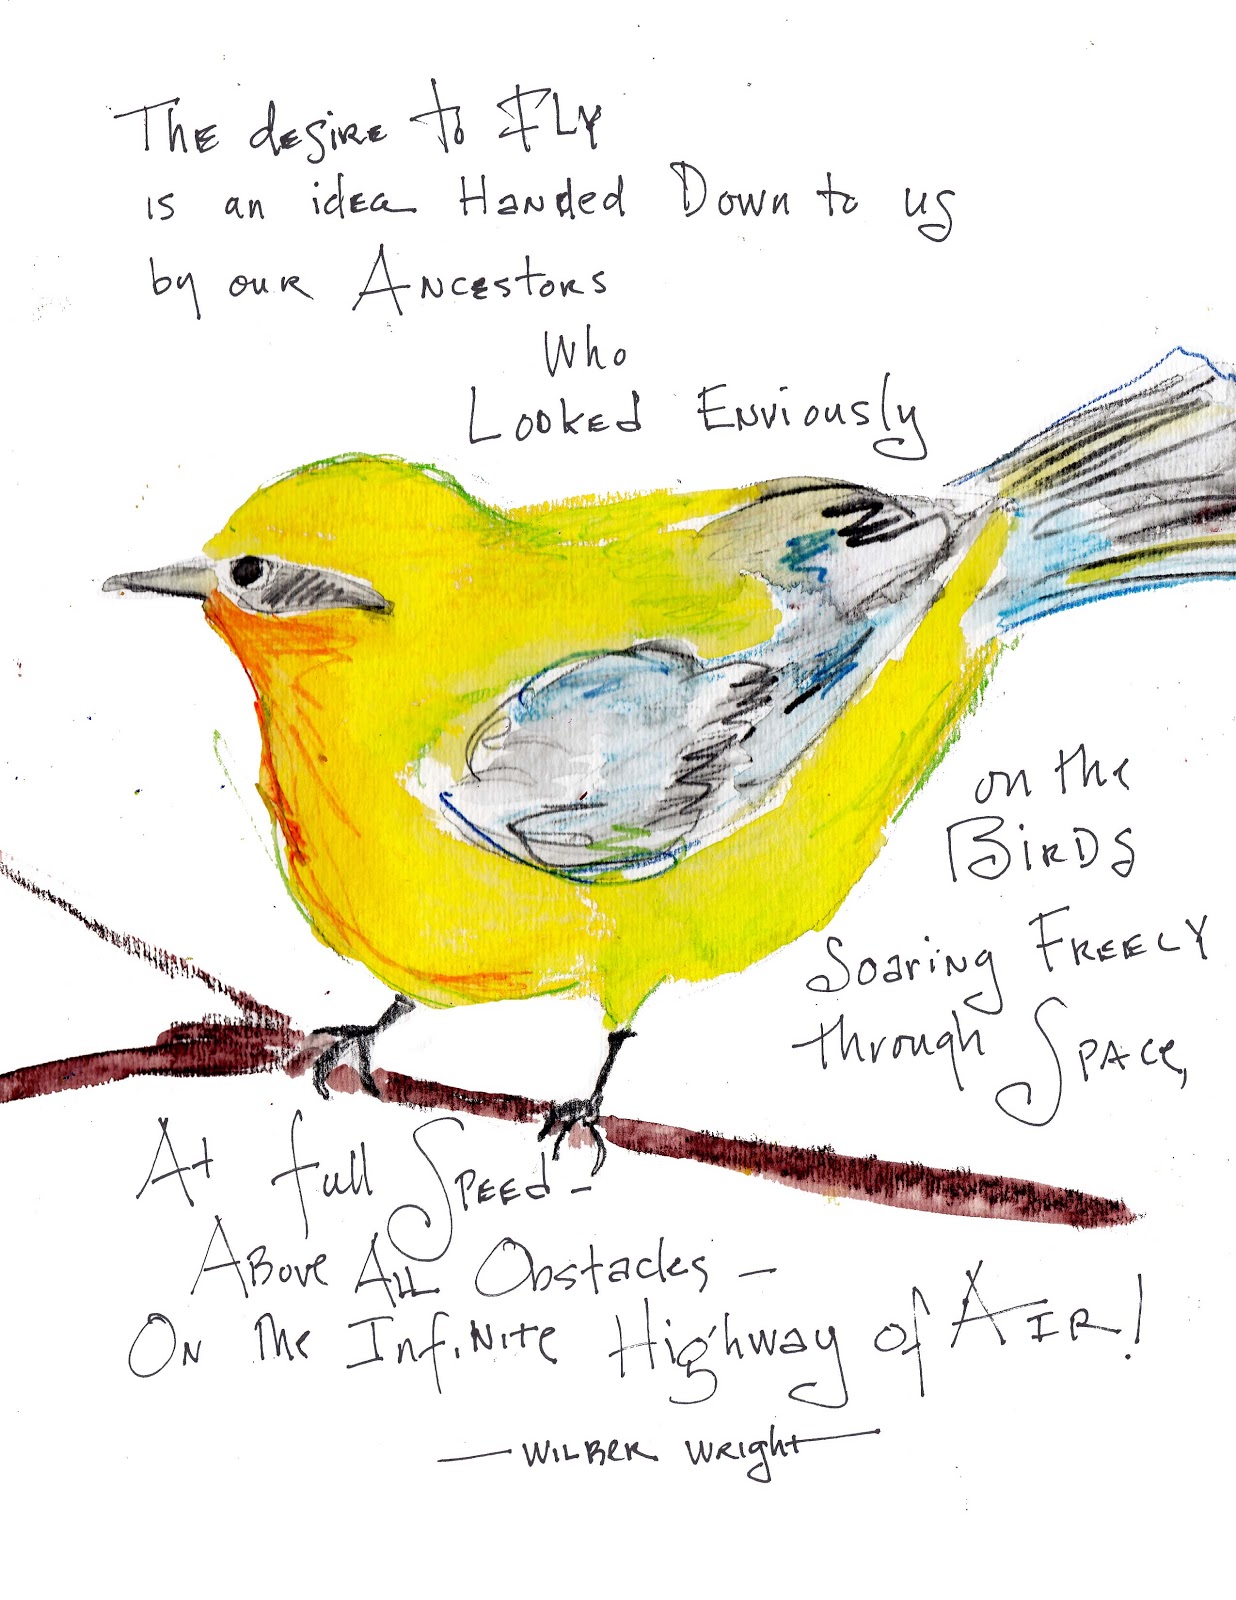 The desire to FLY
is an idea Handed Down to us
by our Ancestors
Who
Looked Enviously
on the
Birds
Soaring Freely
through Space,
At full Speed –
Above All Obstacles –
On The Infinite Highway of Air!
— Wilber Wright —